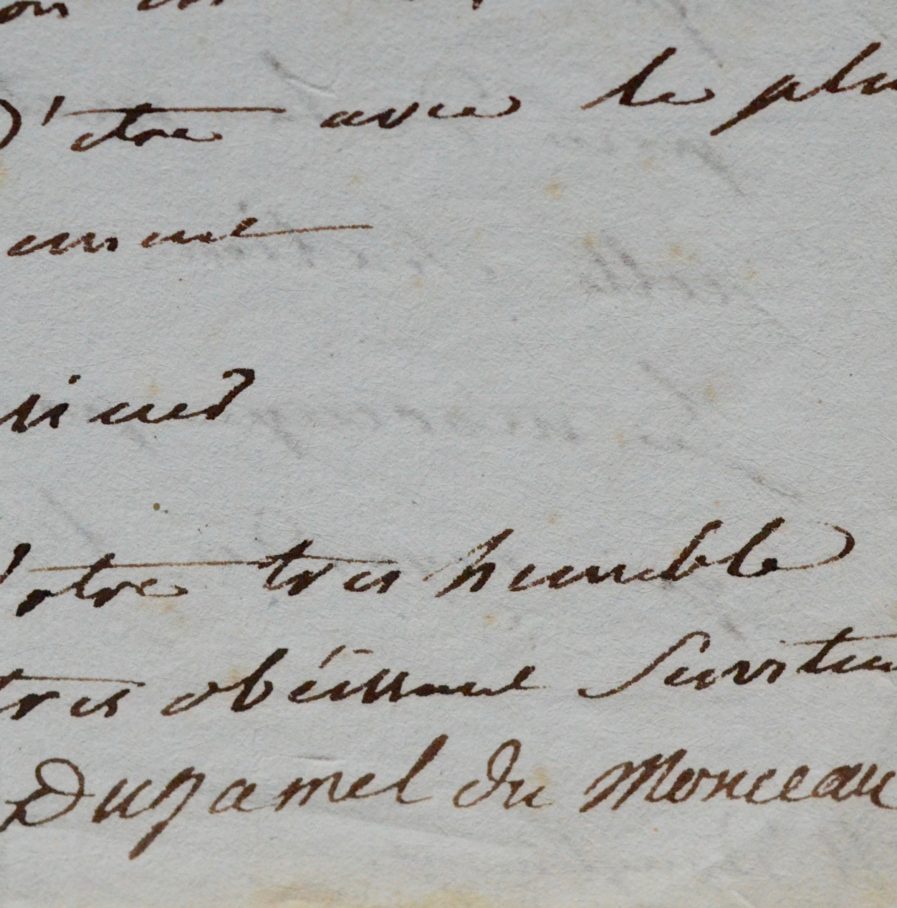 D'etre avec le plu
ement
sieur
Votre tres humble
tres obéissant Serviteu
Duhamel du Monceau